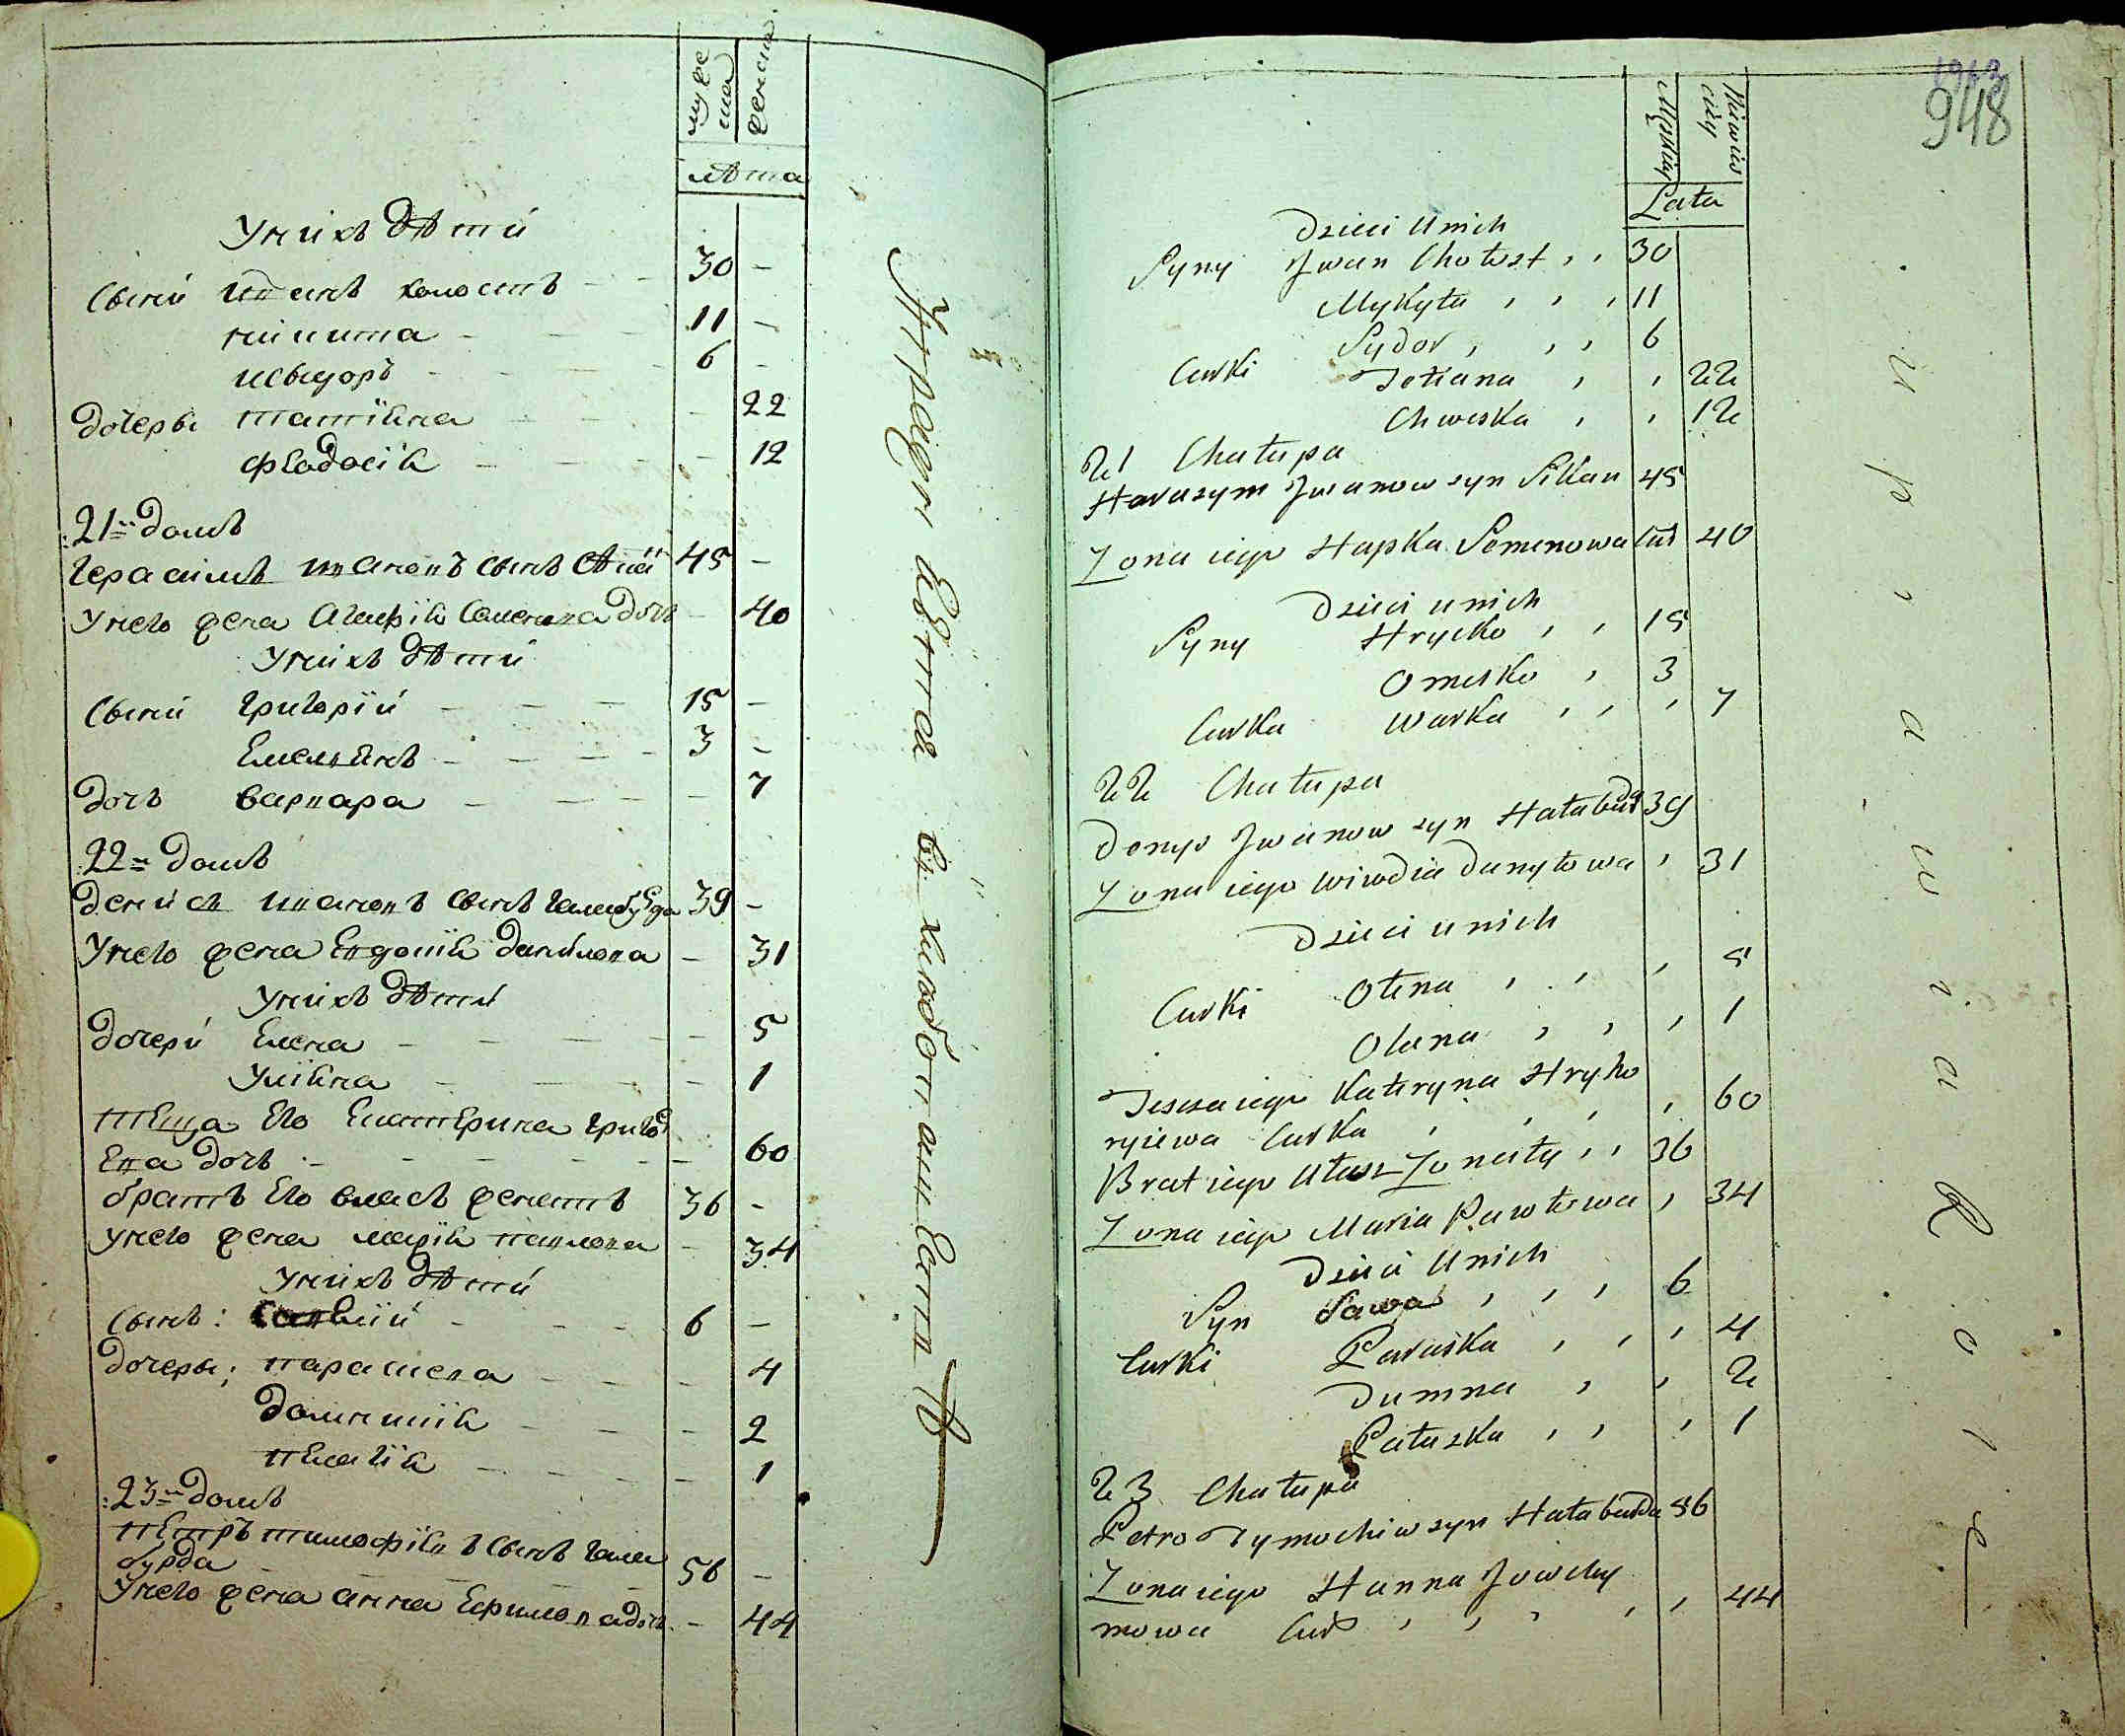 мужеска
женска
лѣта
У нихъ дѣти
Сыни Иванъ холостъ 30 -
никита 11 -
исыдоръ 6 -
дочеры татiяна - 22
фѣодосiя - 12
21й домъ
Герасимъ ивановъ сынъ 45 -
У него жена Агафiя Семенова дочь - 40
У нихъ дѣти
Сыни григорiй 15 -
Емельянъ 3 -
дочь варвара - 7
22й домъ
денисъ ивановъ сынъ галабурда 39 -
У него жена Евдокiя данилова - 31
У нихъ дѣти
дочери Елена - 5
Улiяна - 1
теща Его Екатерина григорi
Ева дочь - 60
братъ Его власъ женатъ 36 -
У него жена марiя павлова - 34
У нихъ дѣти
Сынъ: 6 -
дочеры: парасковa - 4
домникiя - 2
пелагiя - 1
23й домъ
петръ тимофѣевъ сынъ гала
бурда 56 -
У него жена анна Ефимова дочь - 44
948
Męskiey
Niewieściey
Lata
Dzieci u nich
Syny Jwan Chołost , , 30
Mykyta , , , 11
Sydor , , , 6
Curki Tetiana , , 22
Chweska , , 12
21 Chałupa
Harasym Jwanow syn Sikan 45
Zona iego Hapka Semenowa Cur 40
Dzieci u nich
Syny Hrycko , , 15
Omelko , 3
Curka Warka , , , 7
22 Chałupa
Denys Jwanow syn Hałaburda 39
Zona iego Wiwdia Danyłowa , 31
Dzieci u nich
Curki Ołena , , , 5
Olana , , , 1
Teszcza iego Kateryna Hryho
ryiewa Curka , , , 60
Brat iego Ułas Zonaty , , 36
Zona iego Maria Pawłowa , 34
Dzieci u nich
Syn Sawa , , , 6
Curki Paraska , , , 4
Dumna , , 2
Pałaszka , , , 1
23 Chałupa
Petro Tymochiw syn Hałaburda 56
Zona iego Hanna Jowchy
mowa Cur , , , , , 44